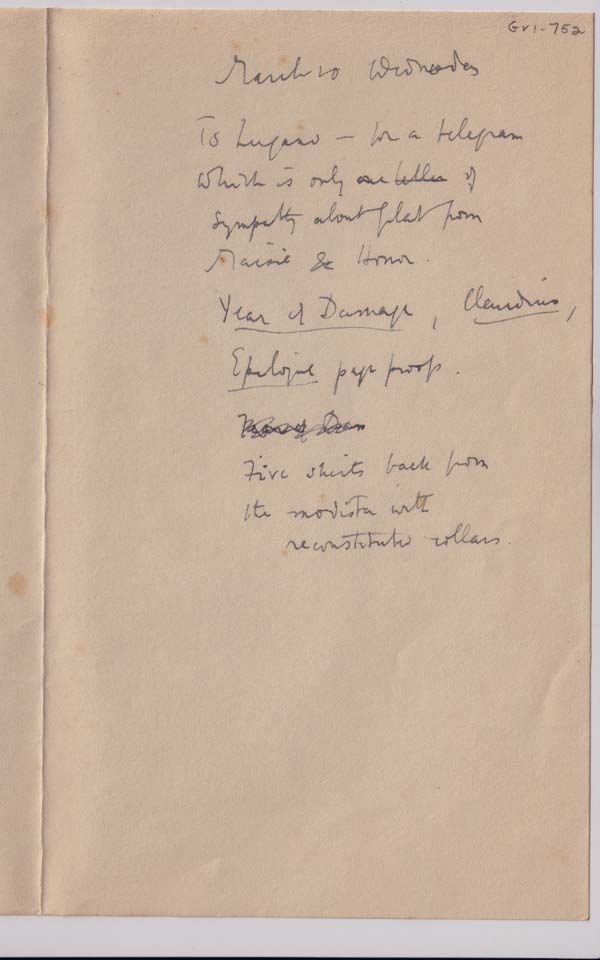 GV1-752
March 10 Wednesday
To Lugano — for a telegram
which is only one letter of
sympathy about flat from
Maisie & Honor.
Year of Damage, Claudius,
Epilogue page proofs.
Five shirts back from
the modista with
reconstituted collars.